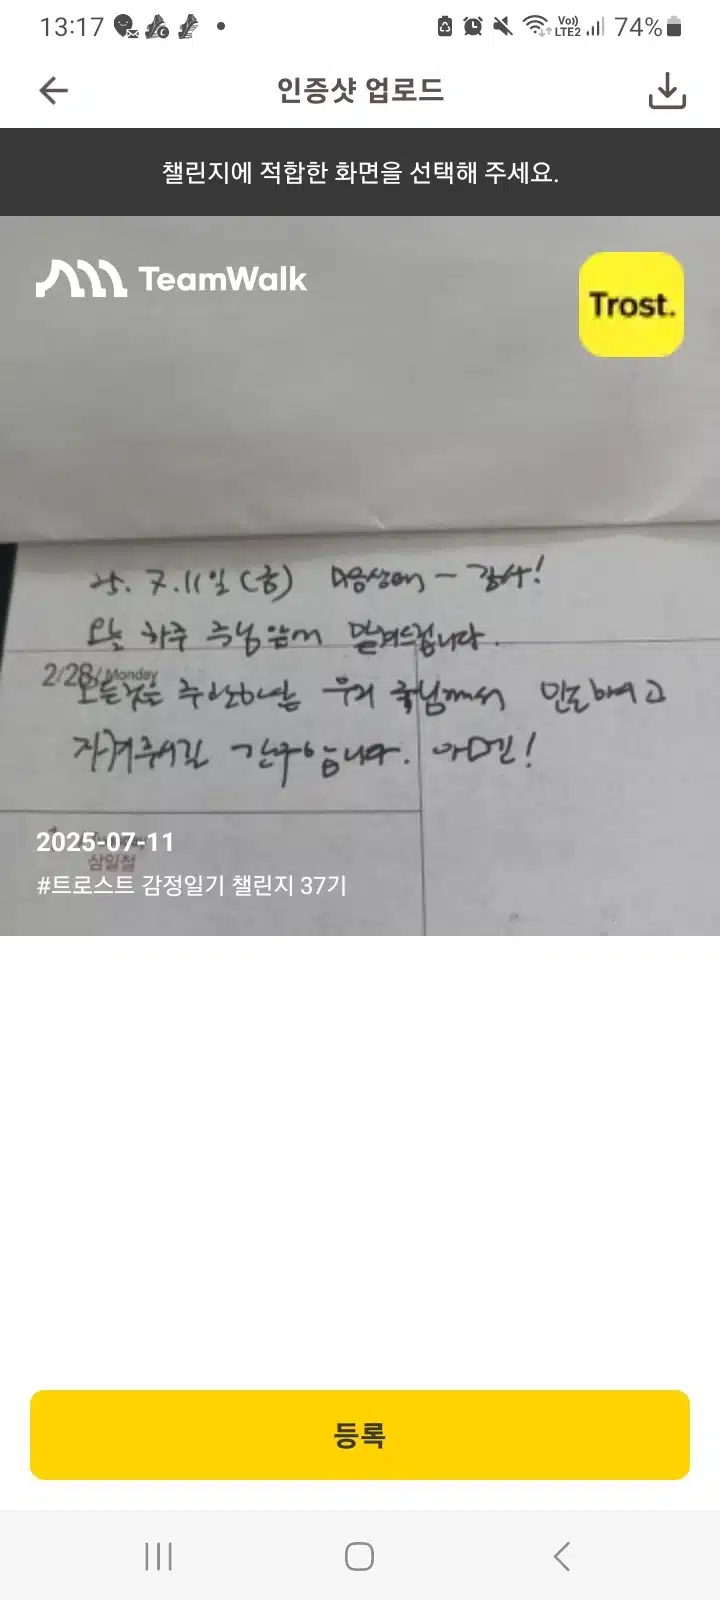 13:17
Vo)) LTE2 74%
인증샷 업로드
챌린지에 적합한 화면을 선택해 주세요.
TeamWalk
Trost.
25. 7.11일 (금) 마음상태 - 감사!
오늘 하루 주님 앞에 맡겨드립니다.
2/28/Monday
모든것을 주관하시는 우리 주님께서 인도하여 주시고
지켜주시길 간구합니다. 아멘!
2025-07-11
삼일절
#트로스트 감정일기 챌린지 37기
등록